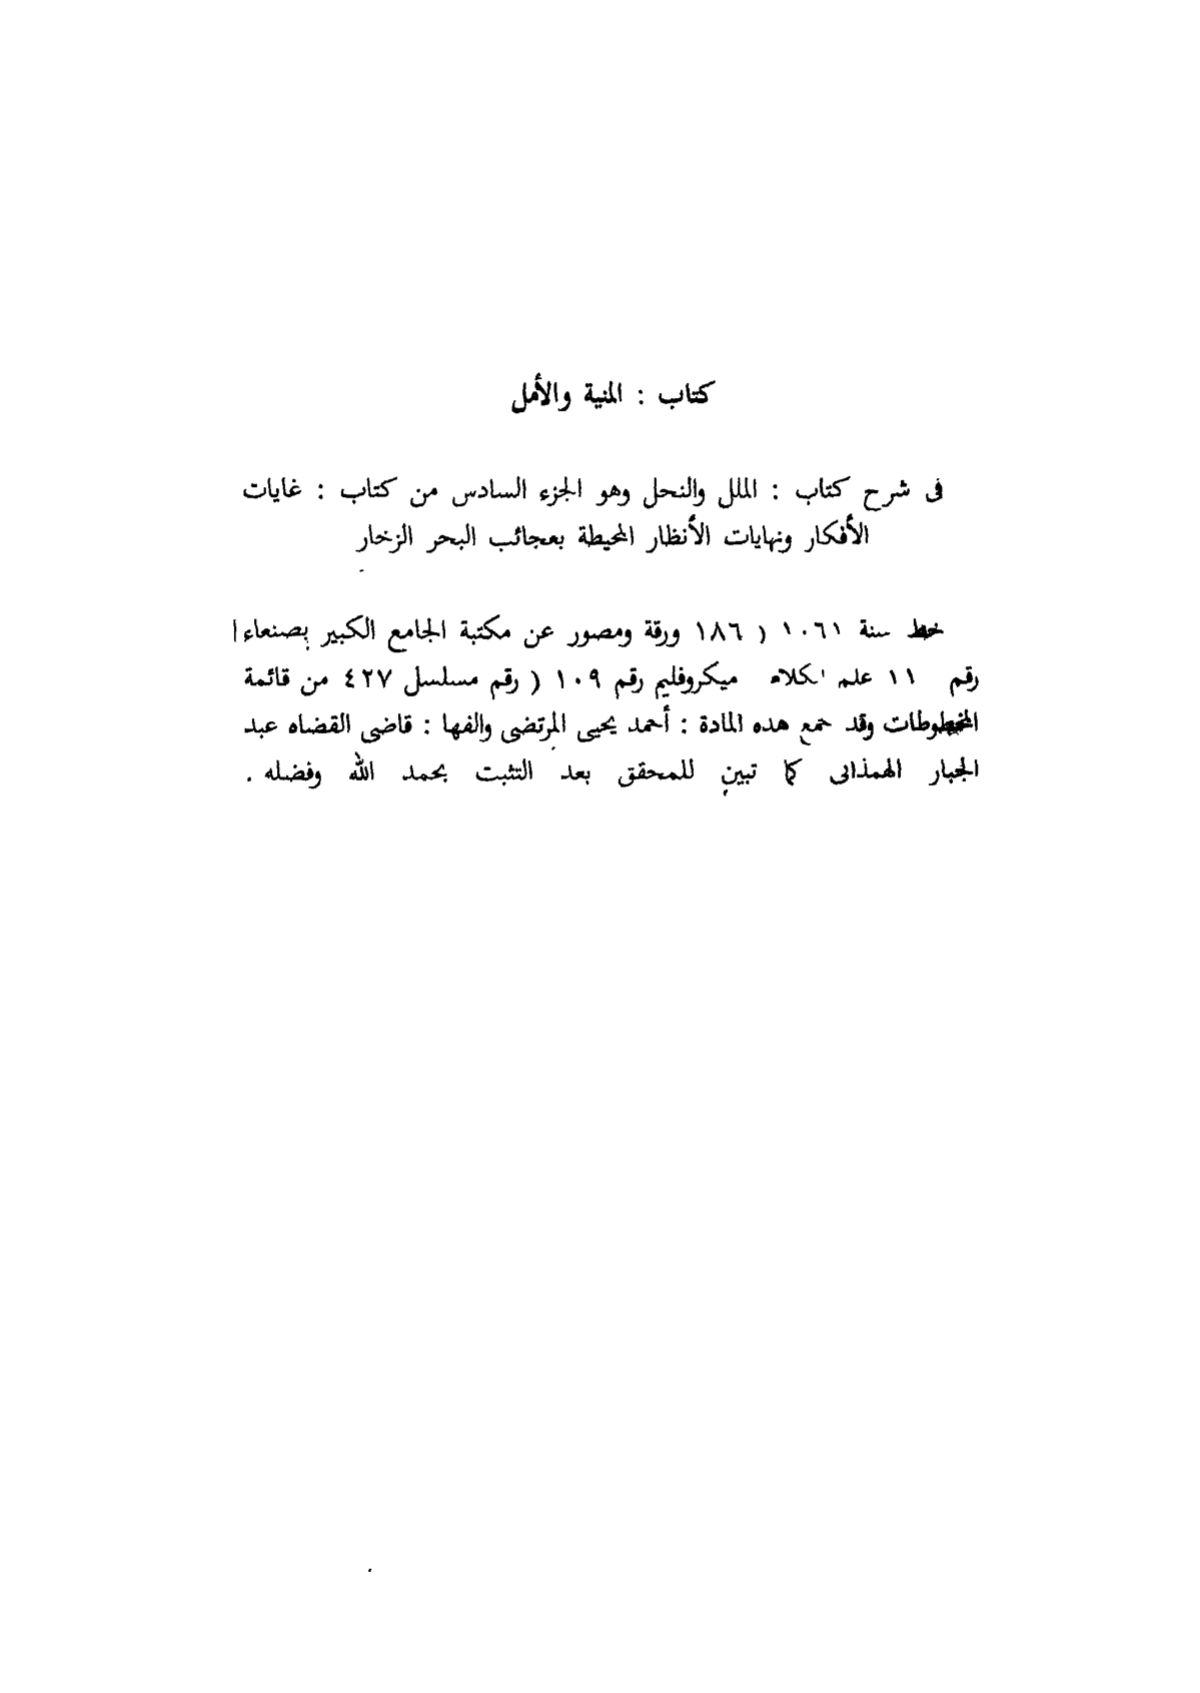 كتاب : المنية والأمل
فى شرح كتاب : الملل والنحل وهو الجزء السادس من كتاب : غايات
الأفكار ونهايات الأنظار المحيطة بعجائب البحر الزخار
خط سنة ١٠٦١ ( ١٨٦ ورقة ومصور عن مكتبة الجامع الكبير بصنعاء
رقم ١١ علم الكلام ميكروفليم رقم ١٠٩ ( رقم مسلسل ٤٢٧ من قائمة
المخطوطات وقد جمع هذه المادة : أحمد يحيى المرتضى والفها : قاضى القضاه عبد
الجبار الهمذانى كما تبين للمحقق بعد التثبت بحمد الله وفضله .